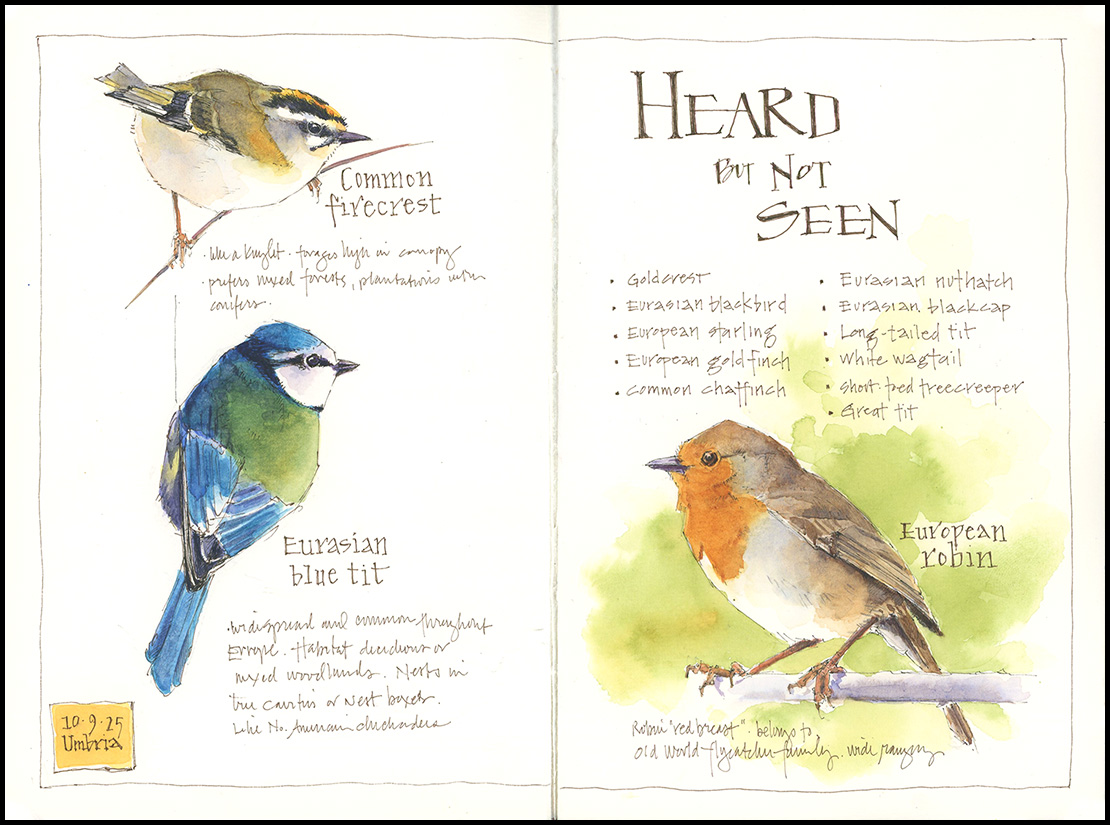 Common
firecrest
· like a Kinglet · forages high in canopy
· prefers mixed forests, plantations with
conifers.
Eurasian
blue tit
· widespread and common throughout
Europe. Habitat deciduous or
mixed woodlands. Nests in
tree cavities or Nest boxes.
Like No. American chickadees
10·9·25
Umbria
HEARD
BUT NOT
SEEN
· Goldcrest
· Eurasian blackbird
· European starling
· European goldfinch
· Common chaffinch
· Eurasian nuthatch
· Eurasian blackcap
· Long-tailed tit
· White wagtail
· Short-toed treecreeper
· Great tit
European
robin
Robin "red breast" · belongs to
Old World flycatcher family. wide ranging